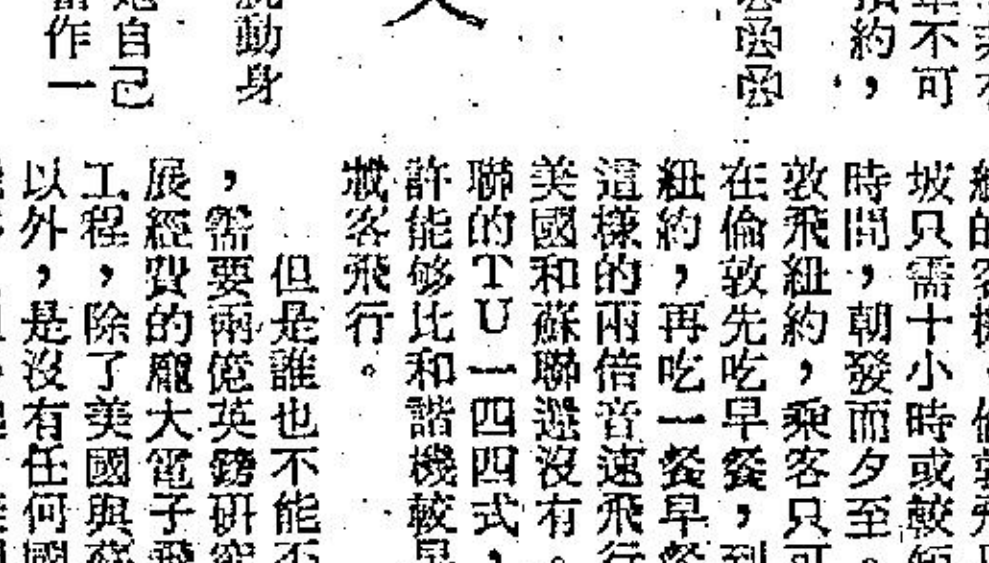 不可
預約，
動身
自己
作一
坡只需十小時或較
時間，朝發而夕至。
敦飛紐約，乘客只可
在倫敦先吃早餐，到
紐約，再吃一餐早餐
這樣的兩倍音速飛行
美國和蘇聯還沒有。
聯的TU一四四式，
許能够比和諧機較早
載客飛行。
但是誰也不能否
，需要兩億英鎊研究
展經費的龐大電子飛
工程，除了美國與蘇
以外，是沒有任何國